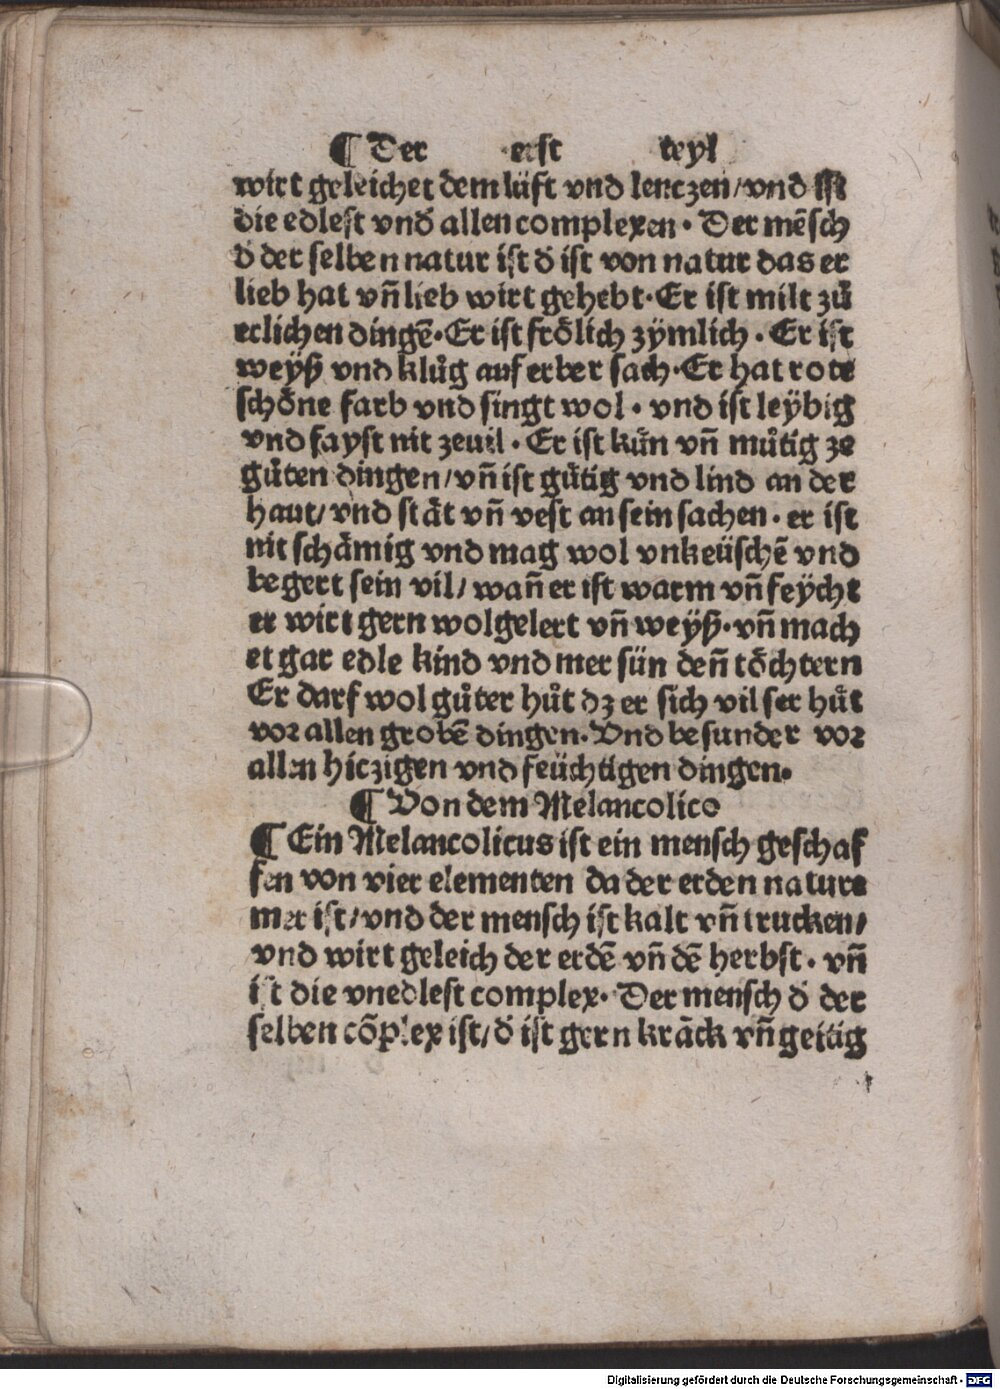 ¶ Der erst teyl
wirt geleichet dem lüft vnd lenczen/vnd ist
die edlest vnď allen complexen. Der mēsch
ď der selben natur ist ď ist von natur das er
lieb hat vn̄ lieb wirt gehebt. Er ist milt zů
erlichen dingē. Er ist frölich zymlich. Er ist
weyß vnd klůg auf erber sach. Er hat rote
schöne farb vnd singt wol. vnd ist leÿbig
vnd fayst nit zeuil. Er ist kün vn̄ můtig ze
gůten dingen/vn̄ ist gütig vnd lind an der
haut/ vnd stät vn̄ vest an sein sachen. er ist
nit schämig vnd mag wol vnkeüschē vnd
begert sein vil/ wan̄ er ist warm vn̄ feÿcht
er wirt gern wolgelert vn̄ weÿß. vn̄ mach
et gar edle kind vnd mer sün den̄ töchtern
Er darf wol gůter hůt dz er sich vil ser hüt
vor allen grobē dingen. Vnd besunder vor
allen hiczigen vnd feüchtigen dingen.
¶ Von dem Melancolico
¶ Ein Melancolicus ist ein mensch geschaf
fen von vier elementen da der erden nature
mer ist/vnd der mensch ist kalt vn̄ trucken/
vnd wirt geleich der erdē vn̄ dē herbst. vn̄
ist die vnedlest complex. Der mensch ď der
selben cōplex ist/ ď ist gern krāck vn̄ geitig
Digitalisierung gefördert durch die Deutsche Forschungsgemeinschaft - DFG